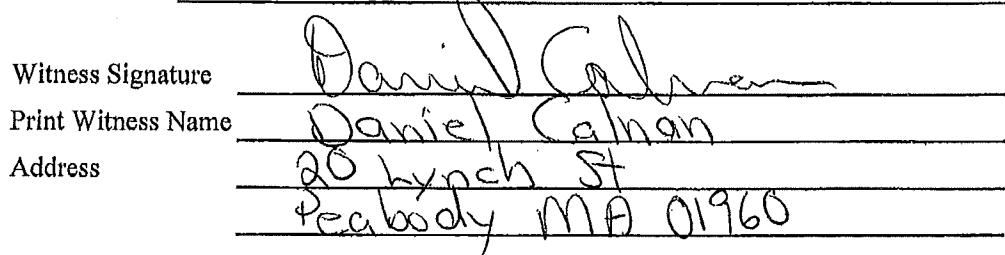 Witness Signature Daniel Calnan
Print Witness Name Daniel Calnan
Address 20 Lynch St
Peabody MA 01960